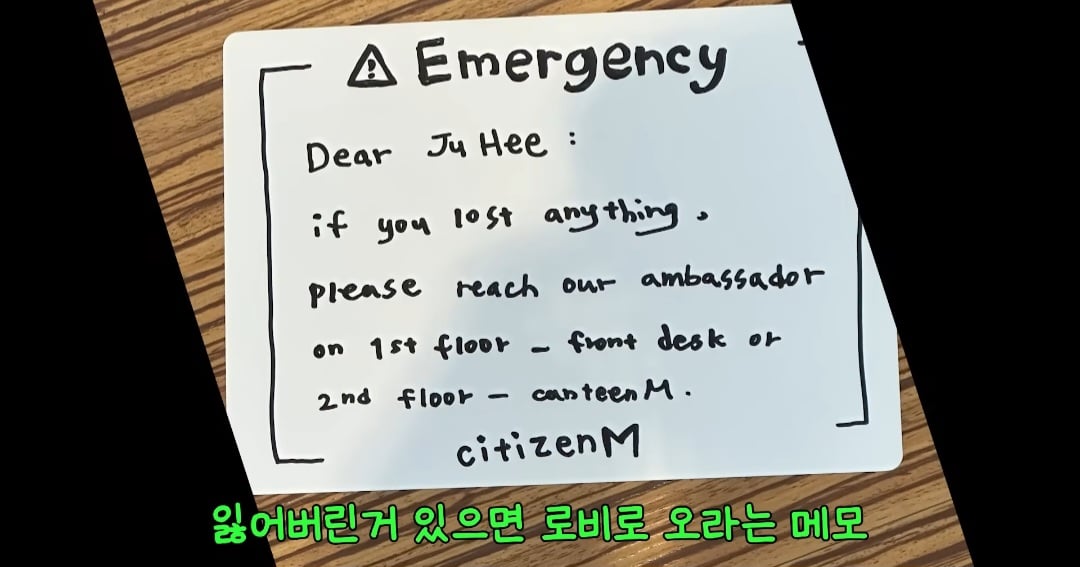 ⚠ Emergency
Dear Ju Hee :
if you lost anything,
please reach our ambassador
on 1st floor - front desk or
2nd floor - canteenM.
citizenM
잃어버린거 있으면 로비로 오라는 메모